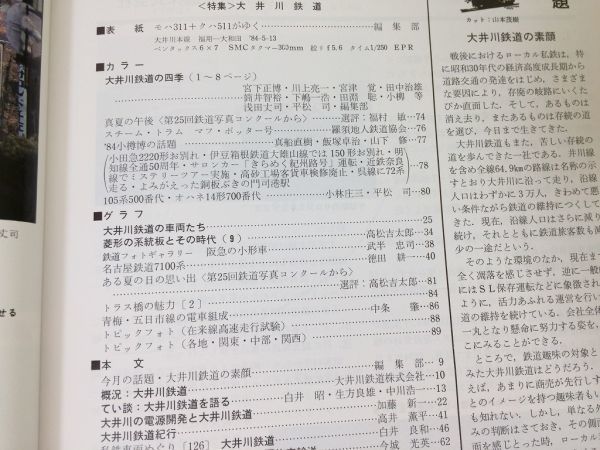 <特集>大井川鉄道
■表紙 モハ311+クハ511がゆく……編集部
大井川本線 福用―大和田 '84-5-13
ペンタックス6×7 SMCタクマー300mm 絞りf5.6 タイム1/250 EPR
■カラー
大井川鉄道の四季(1~8ページ)
宮下正博・川上亮一・宮津 覚・田中治雄
筒井智裕・下嶋一浩・田淵 聡・小柳 等
浅田丈司・平松 司・編集部
真夏の午後〈第25回鉄道写真コンクールから〉……選評:福村 敏…74
スチーム・トラム マフ・ポッター号……羅須地人鉄道協会…76
'84小樽博の話題……真船直樹・飯塚卓治・山下 修…77
小田急2220形お別れ・伊豆箱根鉄道大雄山線では150形お別れ・明
知線全通50周年・サロンカー「きらめく紀州路号」運転・近鉄奈良
線でミステリーツアー実施・高砂工場客貨車検修廃止・呉線に72系
走る・よみがえった銅板ぶきの門司港駅
…78
105系500番代・オハネ14形700番代……小林庄三・平松 司…80
■グラフ
大井川鉄道の車両たち……25
菱形の系統板とその時代(9)……高松吉太郎…34
鉄道フォトギャラリー 阪急の小形車……武半忠司…38
名古屋鉄道7100系……徳田耕一…40
ある夏の日の思い出〈第25回鉄道写真コンクールから〉
……選評:高松吉太郎…81
トラス橋の魅力〔2〕……84
青梅・五日市線の電車組成……中条 肇…86
トピックフォト(在来線高速走行試験)……88
トピックフォト(各地・関東・中部・関西)……89
■本文
今月の話題・大井川鉄道の素顔……編集部…9
概況:大井川鉄道……大井川鉄道株式会社…10
てい談:大井川鉄道を語る……白井 昭・生方良雄・中川浩一…13
大井川の電源開発と大井川鉄道……加藤新一…22
大井川鉄道紀行……高井薫平…41
私鉄車両めぐり〔126〕大井川鉄道……白井良和…46
今城光英…62
カット:山本茂樹
題
大井川鉄道の素顔
戦後におけるローカル私鉄は,特
に昭和30年代の経済高度成長期から
道路交通の発達をはじめ,さまざま
な要因により,存廃の岐路にいくた
びか直面した.そして,あるものは
消え去り,またあるものは存続の道
を選び,今日まで生きてきた.
大井川鉄道もまた,苦しい存続の
道を歩んできた一社である.井川線
を含め全線64.9kmの路線は名勝の示
すとおり大井川に沿って走り,沿線
人口はわずかに3万人,きわめて悪
い条件ながら鉄道の維持につくして
きた.現在,沿線人口はさらに減り
続け,それとともに鉄道旅客数も減
少の一途だという.
そのような環境のなか,現在ま
全く凋落を感じさせず,逆に一般
にはSL保存運転などに象徴され
ように,活力あふれる運営を行い
道の維持を続けている.会社全体
一丸となり懸命に努力する姿を,
こにみることができる.
ところで,鉄道趣味の対象と
みた大井川鉄道はどうだろう.
えば,あまりに商売が先行しす
とのイメージを持つ趣味者もい
も知れない.しかし,単なる外
みの判断はさておき,その側
面を感じとった時,ローカル
丈司
せる